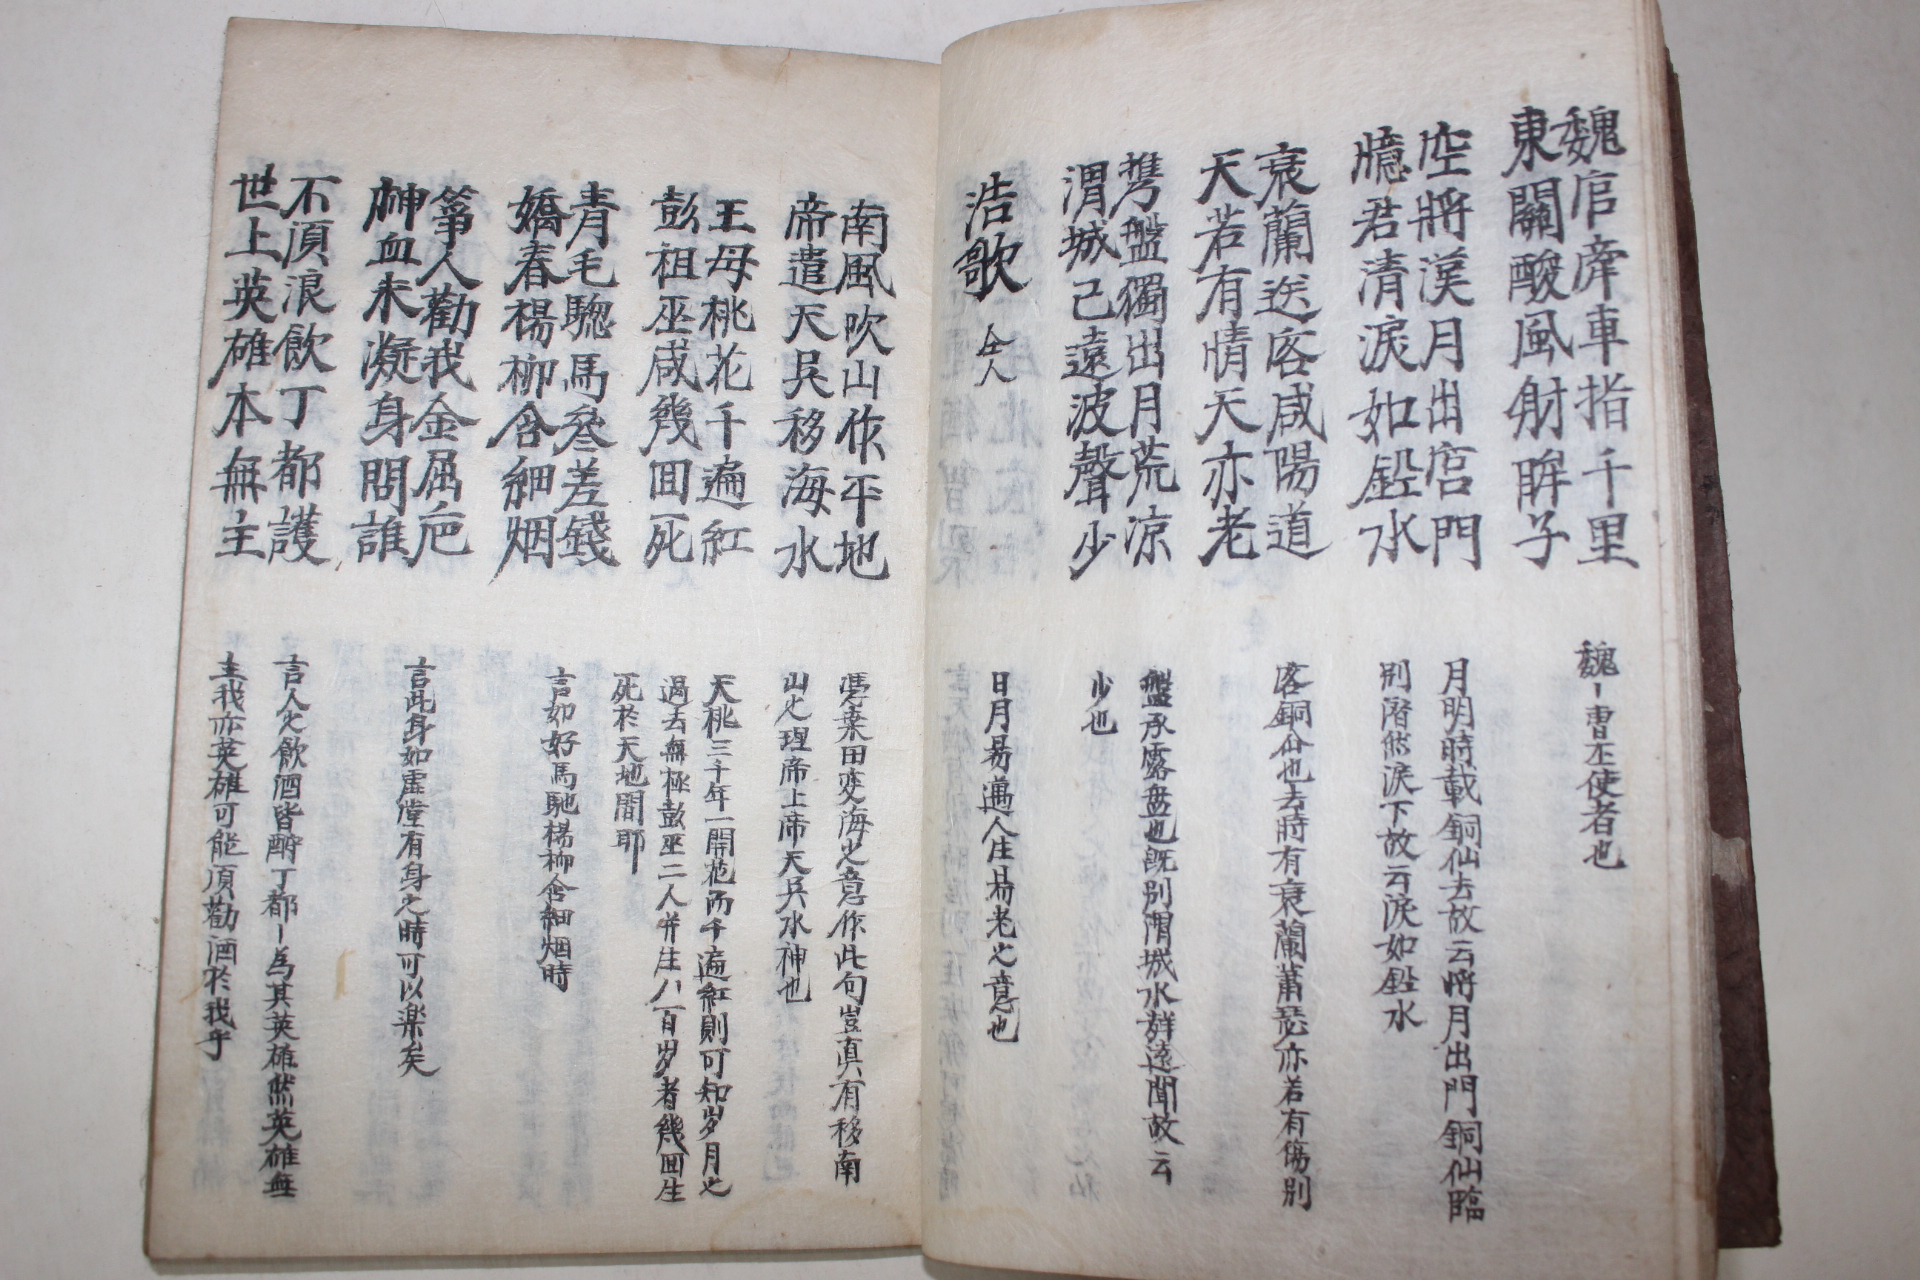 魏官牽車指千里
東關酸風射眸子
魏ㅣ曹丕使者也
空將漢月出宮門
憶君清淚如鉛水
月明時載銅仙去故云將月出門銅仙臨
別潸然淚下故云淚如鉛水
衰蘭送客咸陽道
天若有情天亦老
客銅仝也去時有衰蘭蕭瑟亦若有傷別
携盤獨出月荒凉
渭城已遠波聲少
盤承露盘也旣別渭城水聲遠聞故云
少也
浩歌 仝人
日月易邁人生易老之意也
南風吹山作平地
帝遣天吳移海水
憑桒田変海之意作此句豈真有移南
山之理帝上帝天吳水神也
王母桃花千遍紅
彭祖巫咸幾囬死
天桃三千年一開花而千遍紅則可知岁月之
過去無極彭巫二人幷生八百岁者幾囬生
死於天地間耶
青毛驄馬叅差錢
嬌春楊柳含細烟
言如好馬馳楊柳含細烟時
箏人勸我金屈巵
神血未凝身問誰
言此身如虛堂有身之時可以楽矣
不須浪飮丁都護
世上英雄本無主
言人之飮酒皆酹丁都ㅣ爲其英雄然英雄無
主我亦英雄可能須勸酒於我乎